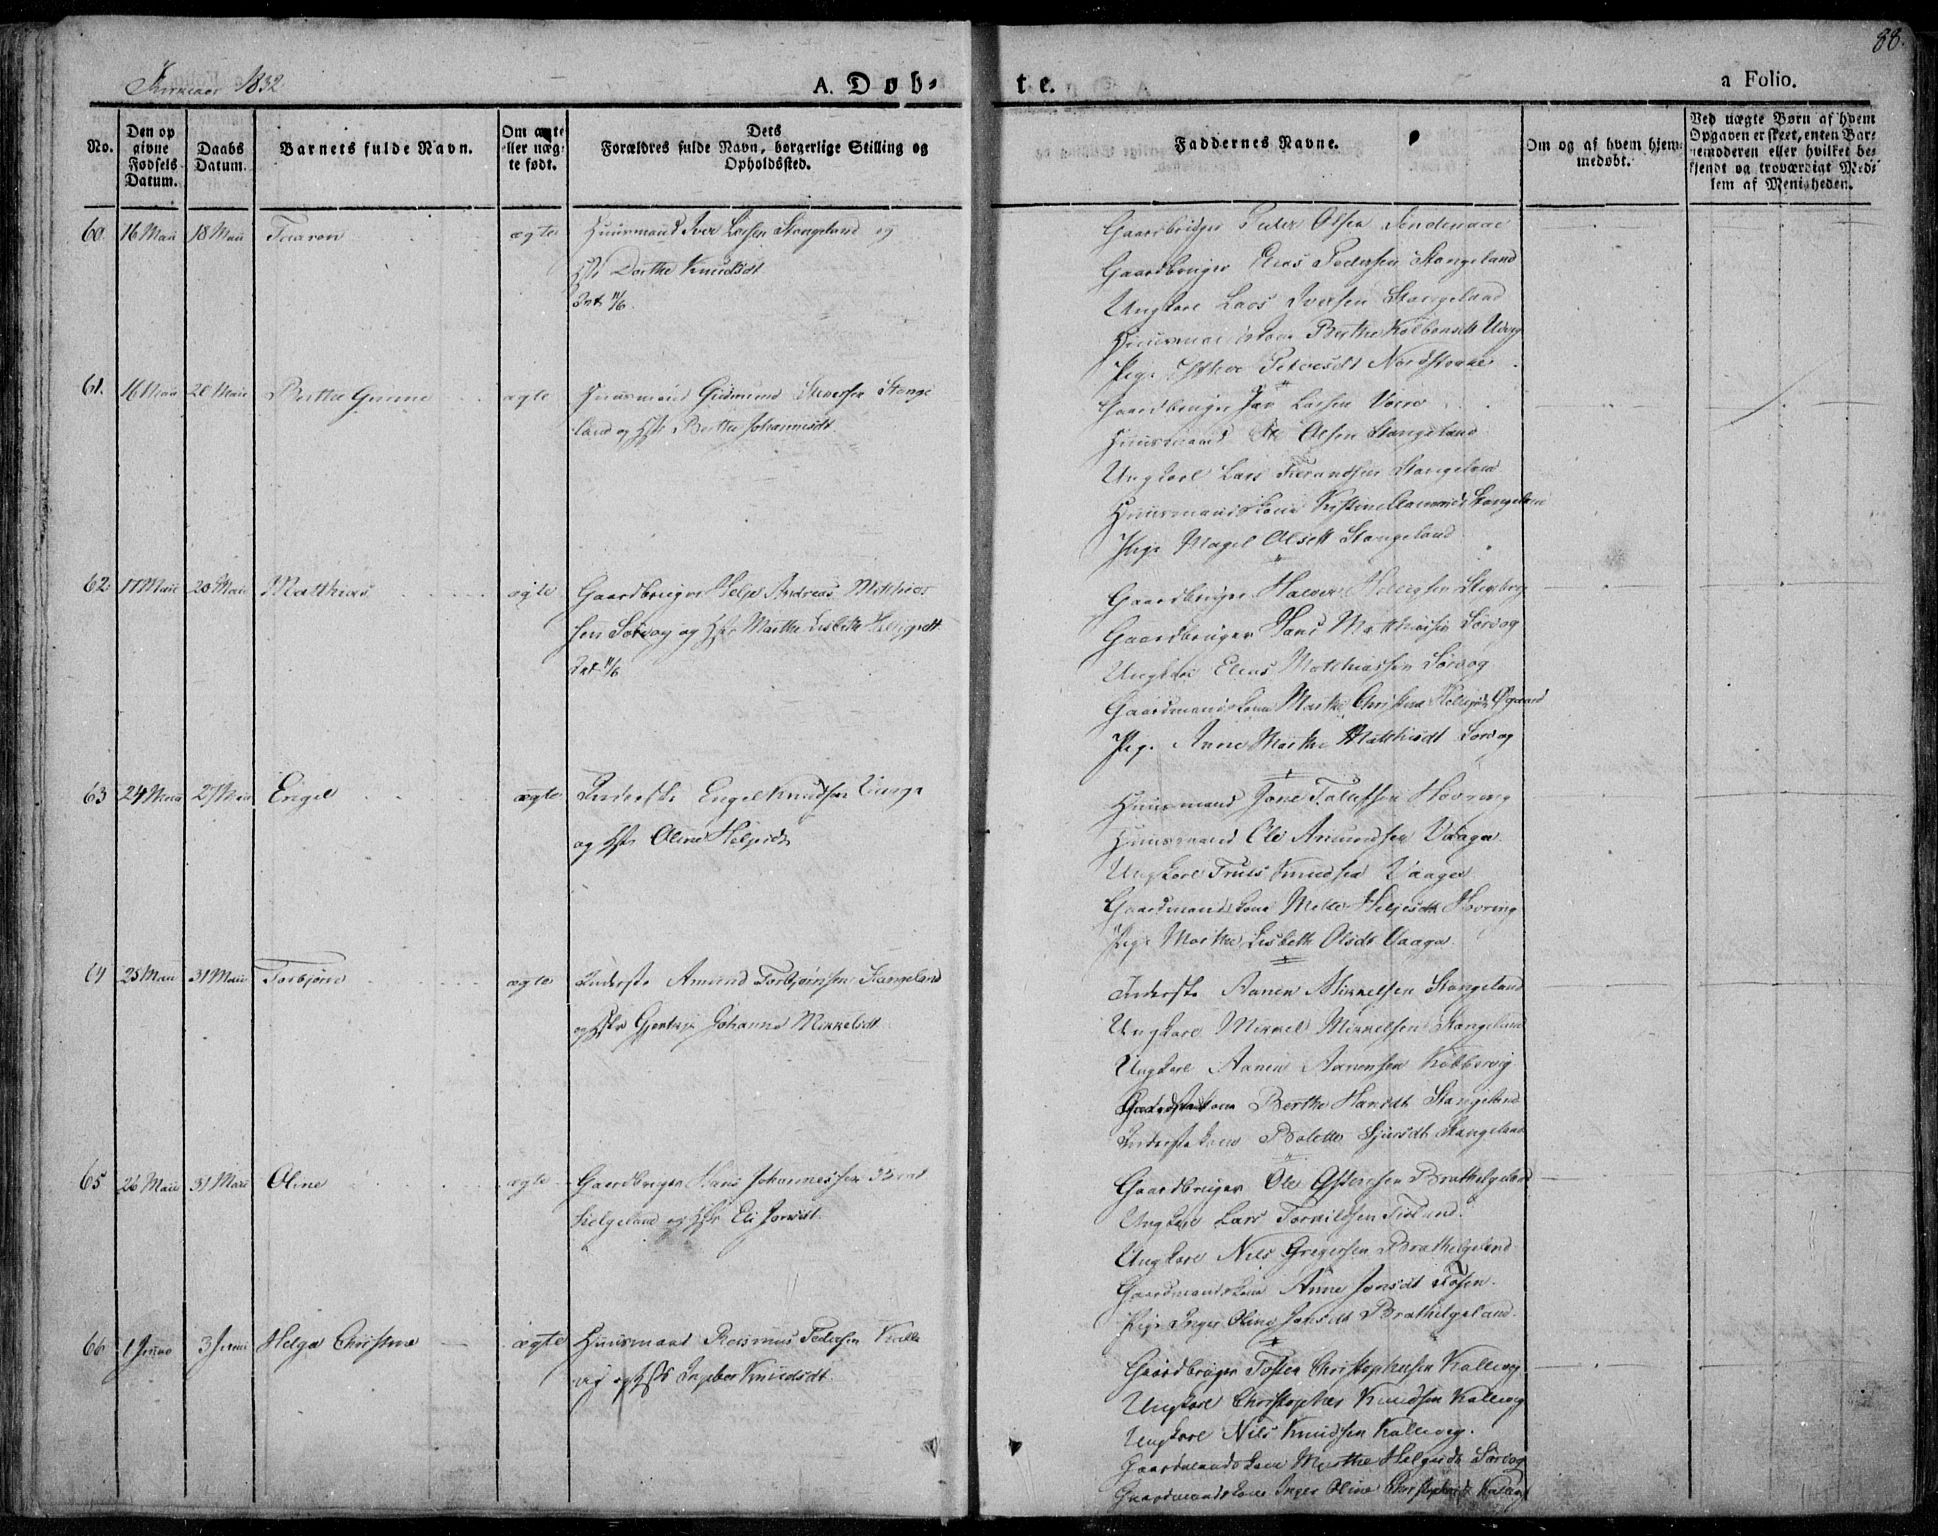 88.
Kirkeaar 1832
A. Døb-
te.
a Folio.
No.
Den op
givne
Fødsels
Datum.
Daabs
Datum.
Barnets fulde Navn.
Om ægte
eller uæg-
te født.
Dets
Forældres fulde Navn, borgerlige Stilling og
Opholdssted.
Faddernes Navne.
Om og af hvem hjem-
medøbt.
Ved uægte Børn af hvem
Opgaven er skeet, enten Bar-
nemoderen eller hvilket be-
kjendt og troværdigt Med-
lem af Menigheden.
60. 16 Maii 18 Maii ægte Huusmand Iver Larsen Stangeland og
Hst Dorthe Knudsdt
Int. 11/6.
Gaardbruger Peder Olsen
Gaardbruger Elias Pedersen Stangeland
Ungkarl Lars Iversen Stangeland
Huusmandskone Berthe
Pige
61. 16 Maii 20 Maii Berthe Gurine ægte Huusmand Gudmund Stange
land og Hst Berthe Johannesdt
Gaardbruger Larsen
Huusmand Olsen Stangeland
Ungkarl Lars Stangeland
Huusmandskone Stangeland
Pige Magel Olsdt Stangeland
62. 17 Maii 20 Maii Matthias ægte Gaardbruger Helje Andreas Matthias
sen Sørvog og Hst Marthe Lisbeth Heljesdt
Int. 11/6
Gaardbruger Halvor
Gaardbruger Hans Matthiassen Sørvog
Ungkarl Elias Matthiassen Sørvog
Gaardmandskone Marthe Christine Øgaard
Pige Anne Marthe Matthisdt Sørvog
63 24 Maii 27 Maii Engel ægte Inderste Engel Knudsen
og Hst Oline Heljesdt
Huusmand Jone Høvring
Huusmand Ole Amundsen Vaage
Ungkarl Truls Knudsen Vaage
Gaardmandskone Mette Heljesdt Høvring
Pige Marthe Lisbeth Olsdt Vaage
64 25 Maii 31 Maii Torbjørn ægte Inderste Amund Torbjørnsen Stangeland
og Hst Gjertrue Johanne Mikkelsdt
Inderste Aanen Mikkelsen Stangeland
Ungkarl Mikkel Mikkelsen Stangeland
Ungkarl Aanen Aanensen Kobbervig
Berthe Hansdt Stangeland
Inderste kone Bolette Sjursdt Stangeland
65 26 Maii 31 Maii Oline ægte Gaardbruger Hans Johannessen Brat
helgeland og Hst Eli Jonsdt
Gaardbruger Ole Ostensen Brathelgeland
Ungkarl Lars Torkildsen
Ungkarl Nils Gregersen Brathelgeland
Gaardmandskone Anne Jonsdt
Pige Inger Oline Jonsdt Brathelgeland
66 1 Junii 3 Junii Helga Christine ægte Huusmand Rasmus Pedersen Kalle
vig og Hst Ingebor Knudsdt
Gaardbruger Tosten Christophersen Kallevig
Ungkarl Christopher Knudsen Kallevig
Ungkarl Nils Knudsen Kallevig.
Gaardmandskone Marthe Helgesdt Sørvog
Gaardmandskone Inger Oline Christophersdt Kallevig